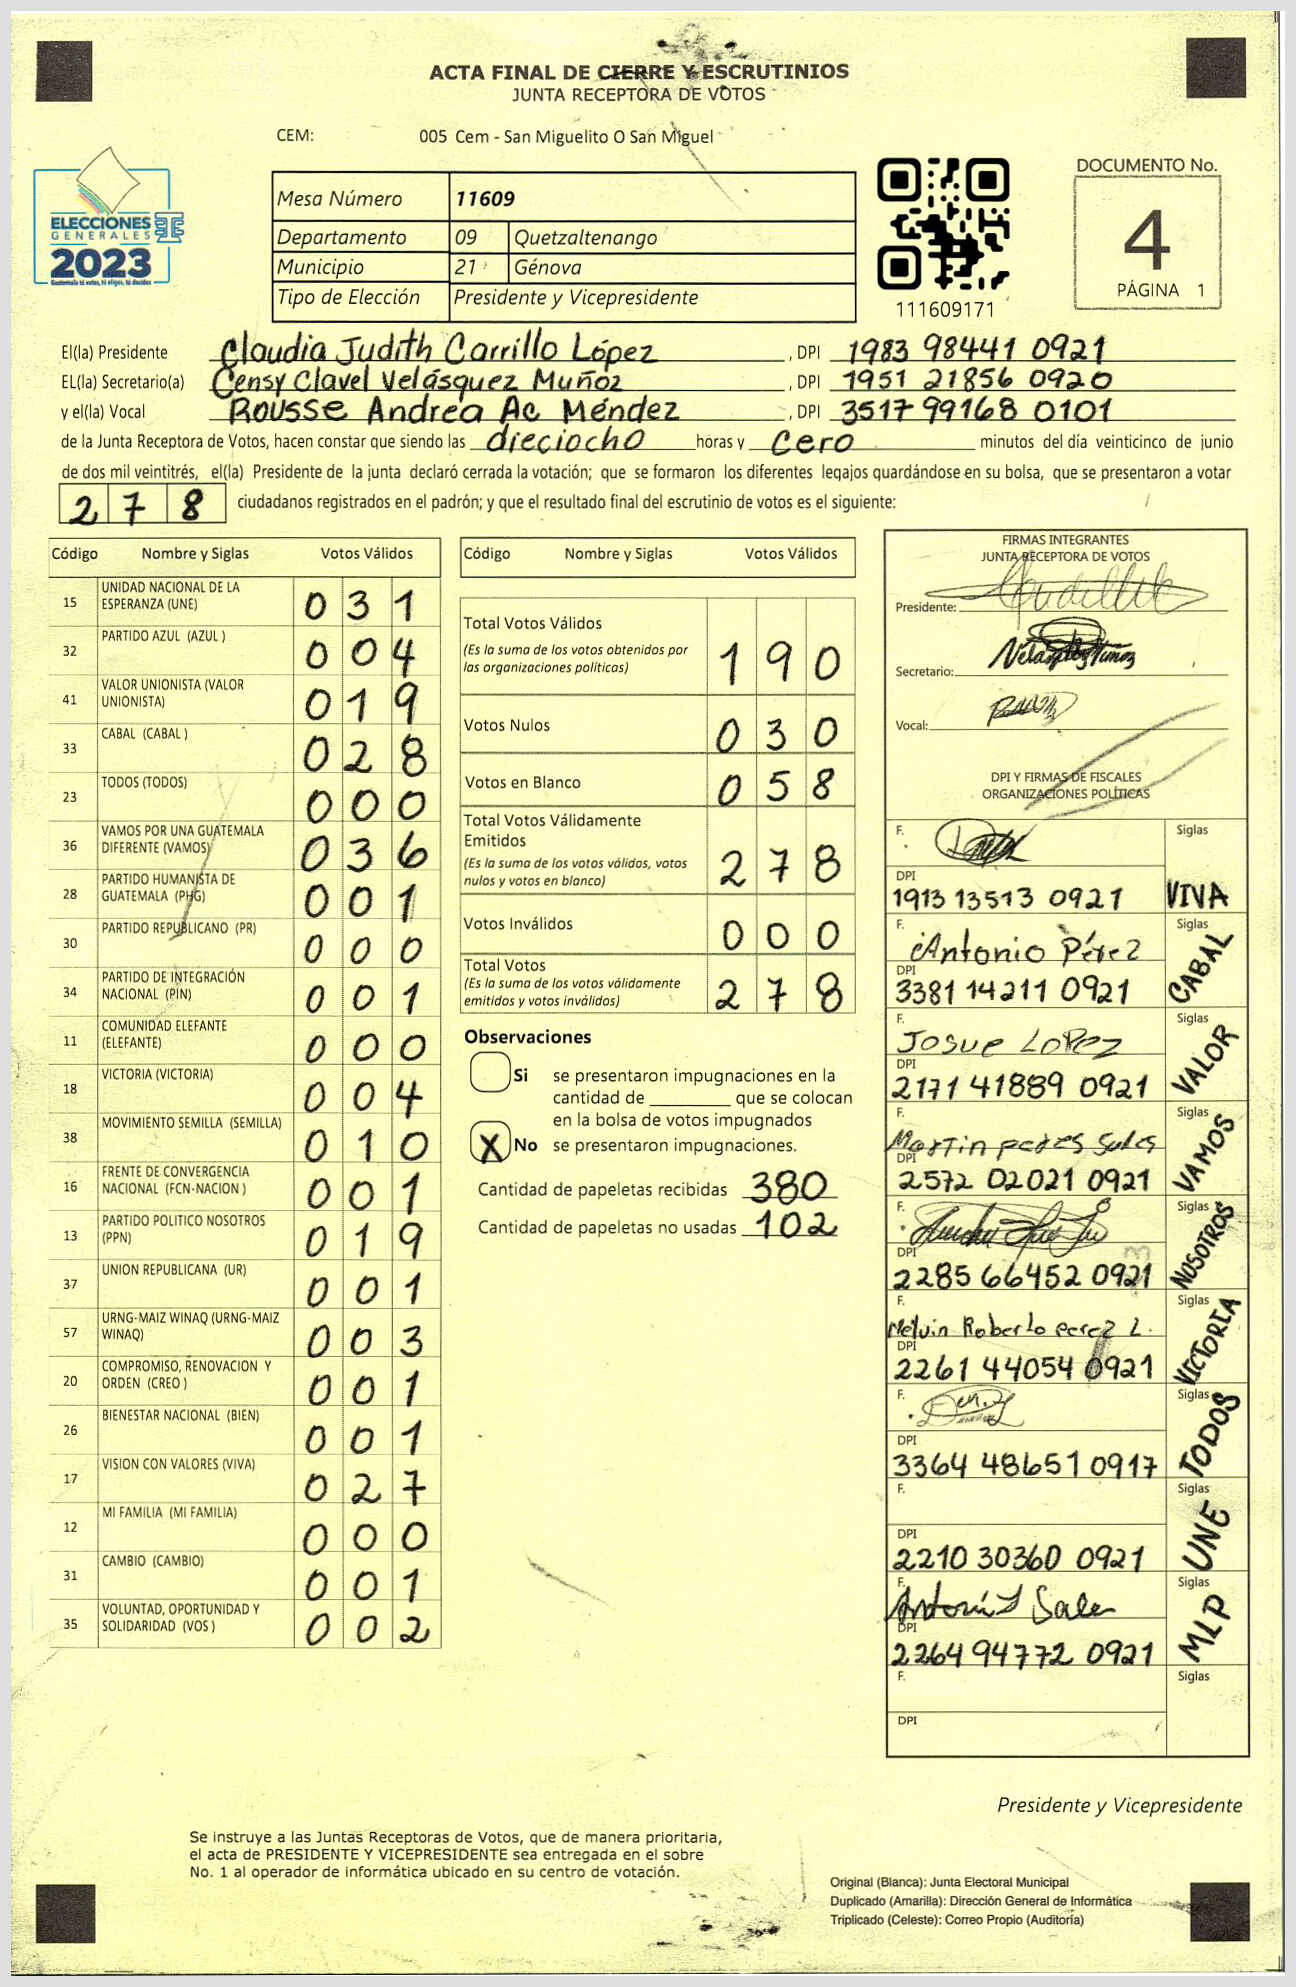 ACTA FINAL DE CIERRE Y ESCRUTINIOS
JUNTA RECEPTORA DE VOTOS
CEM: 005 Cem - San Miguelito O San Miguel
ELECCIONES
GENERALES
2023
Guatemala tú votas, tú eliges, tú decides
Mesa Número 11609
Departamento 09 Quetzaltenango
Municipio 21 Génova
Tipo de Elección Presidente y Vicepresidente
111609171
DOCUMENTO No.
4
PÁGINA 1
El(la) Presidente Claudia Judith Carrillo López , DPI 1983 98441 0921
EL(la) Secretario(a) Censy Clavel Velásquez Muñoz , DPI 1951 21856 0920
y el(la) Vocal Rousse Andrea Ac Méndez , DPI 3517 99168 0101
de la Junta Receptora de Votos, hacen constar que siendo las dieciocho horas y cero minutos del día veinticinco de junio
de dos mil veintitrés, el(la) Presidente de la junta declaró cerrada la votación; que se formaron los diferentes legajos quardándose en su bolsa, que se presentaron a votar
2 7 8 ciudadanos registrados en el padrón; y que el resultado final del escrutinio de votos es el siguiente:
Código Nombre y Siglas Votos Válidos
15 UNIDAD NACIONAL DE LA
ESPERANZA (UNE) 0 3 1
32 PARTIDO AZUL (AZUL ) 0 0 4
41 VALOR UNIONISTA (VALOR
UNIONISTA) 0 1 9
33 CABAL (CABAL ) 0 2 8
23 TODOS (TODOS) 0 0 0
36 VAMOS POR UNA GUATEMALA
DIFERENTE (VAMOS) 0 3 6
28 PARTIDO HUMANISTA DE
GUATEMALA (PHG) 0 0 1
30 PARTIDO REPUBLICANO (PR) 0 0 0
34 PARTIDO DE INTEGRACIÓN
NACIONAL (PIN) 0 0 1
11 COMUNIDAD ELEFANTE
(ELEFANTE) 0 0 0
18 VICTORIA (VICTORIA) 0 0 4
38 MOVIMIENTO SEMILLA (SEMILLA) 0 1 0
16 FRENTE DE CONVERGENCIA
NACIONAL (FCN-NACION ) 0 0 1
13 PARTIDO POLITICO NOSOTROS
(PPN) 0 1 9
37 UNION REPUBLICANA (UR) 0 0 1
57 URNG-MAIZ WINAQ (URNG-MAIZ
WINAQ) 0 0 3
20 COMPROMISO, RENOVACION Y
ORDEN (CREO ) 0 0 1
26 BIENESTAR NACIONAL (BIEN) 0 0 1
17 VISION CON VALORES (VIVA) 0 2 7
12 MI FAMILIA (MI FAMILIA) 0 0 0
31 CAMBIO (CAMBIO) 0 0 1
35 VOLUNTAD, OPORTUNIDAD Y
SOLIDARIDAD (VOS ) 0 0 2
Código Nombre y Siglas Votos Válidos
Total Votos Válidos
(Es la suma de los votos obtenidos por
las organizaciones politicas) 1 9 0
Votos Nulos 0 3 0
Votos en Blanco 0 5 8
Total Votos Válidamente
Emitidos
(Es la suma de los votos válidos, votos
nulos y votos en blanco) 2 7 8
Votos Inválidos 0 0 0
Total Votos
(Es la suma de los votos válidamente
emitidos y votos inválidos) 2 7 8
Observaciones
Si se presentaron impugnaciones en la
cantidad de ________ que se colocan
en la bolsa de votos impugnados
X No se presentaron impugnaciones.
Cantidad de papeletas recibidas 380
Cantidad de papeletas no usadas 102
FIRMAS INTEGRANTES
JUNTA RECEPTORA DE VOTOS
Presidente:
Secretario: Velásquez Muñoz
Vocal:
DPI Y FIRMAS DE FISCALES
ORGANIZACIONES POLÍTICAS
F. Siglas
DPI
1913 13513 0921 VIVA
F. Antonio Pérez Siglas
DPI
3381 14211 0921 CABAL
F. Josue Lopez Siglas
DPI
2171 41889 0921 VALOR
F. Martin Siglas
DPI
2572 02021 0921 VAMOS
F. Siglas
DPI
2285 66452 0921 NOSOTROS
F. Melvin Roberto perez L. Siglas
DPI
2261 44054 0921 VICTORIA
F. Siglas
DPI
3364 48651 0917 TODOS
F. Siglas
DPI
2210 30360 0921 UNE
F. Siglas
DPI
2264 94772 0921 MLP
F. Siglas
DPI
Presidente y Vicepresidente
Se instruye a las Juntas Receptoras de Votos, que de manera prioritaria,
el acta de PRESIDENTE Y VICEPRESIDENTE sea entregada en el sobre
No. 1 al operador de informática ubicado en su centro de votación.
Original (Blanca): Junta Electoral Municipal
Duplicado (Amarilla): Dirección General de Informática
Triplicado (Celeste): Correo Propio (Auditoría)